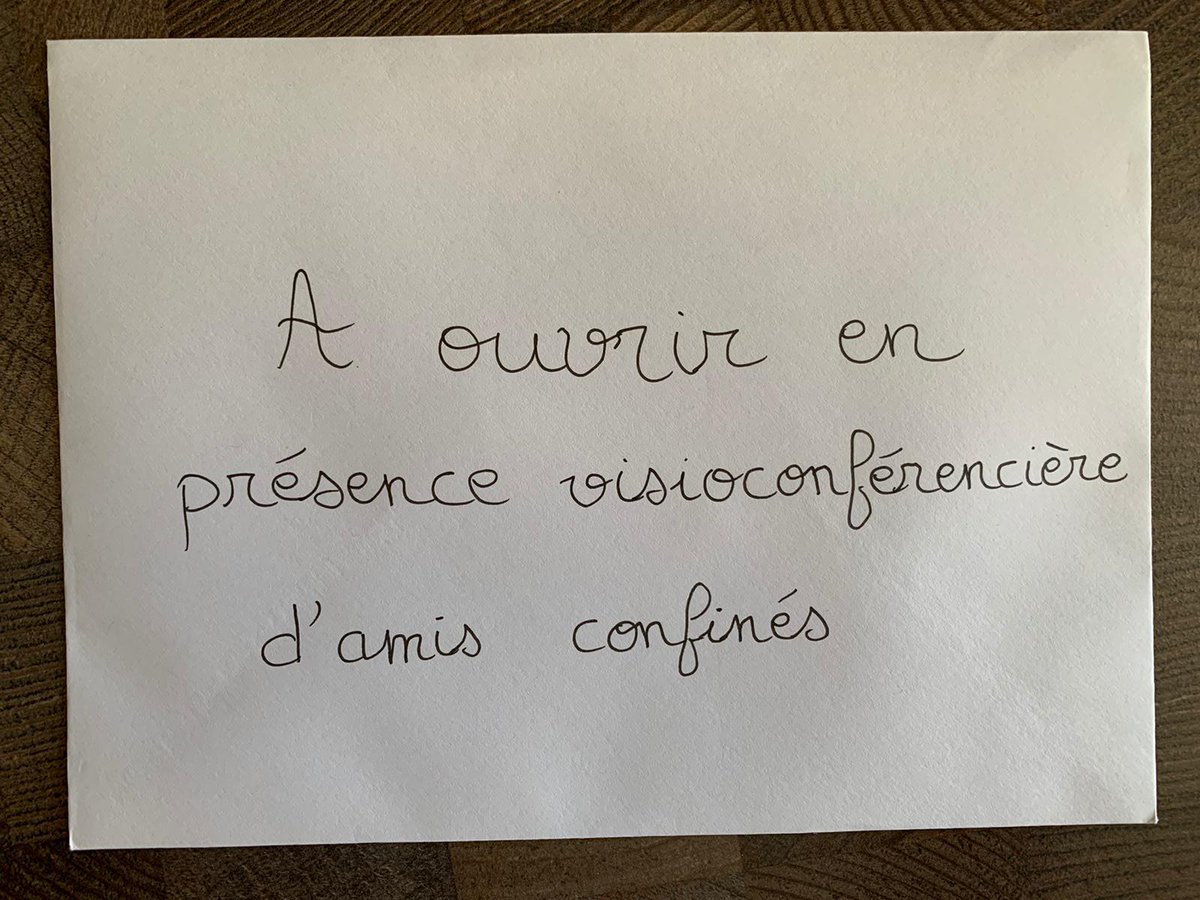 A ouvrir en
présence visioconférencière
d'amis confinés